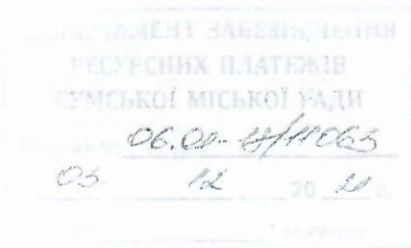 ДЕПАРТАМЕНТ ЗАБЕЗПЕЧЕННЯ
РЕСУРСНИХ ПЛАТЕЖІВ
СУМСЬКОЇ МІСЬКОЇ РАДИ
06.01-17/11063
03 12 20 21 р.